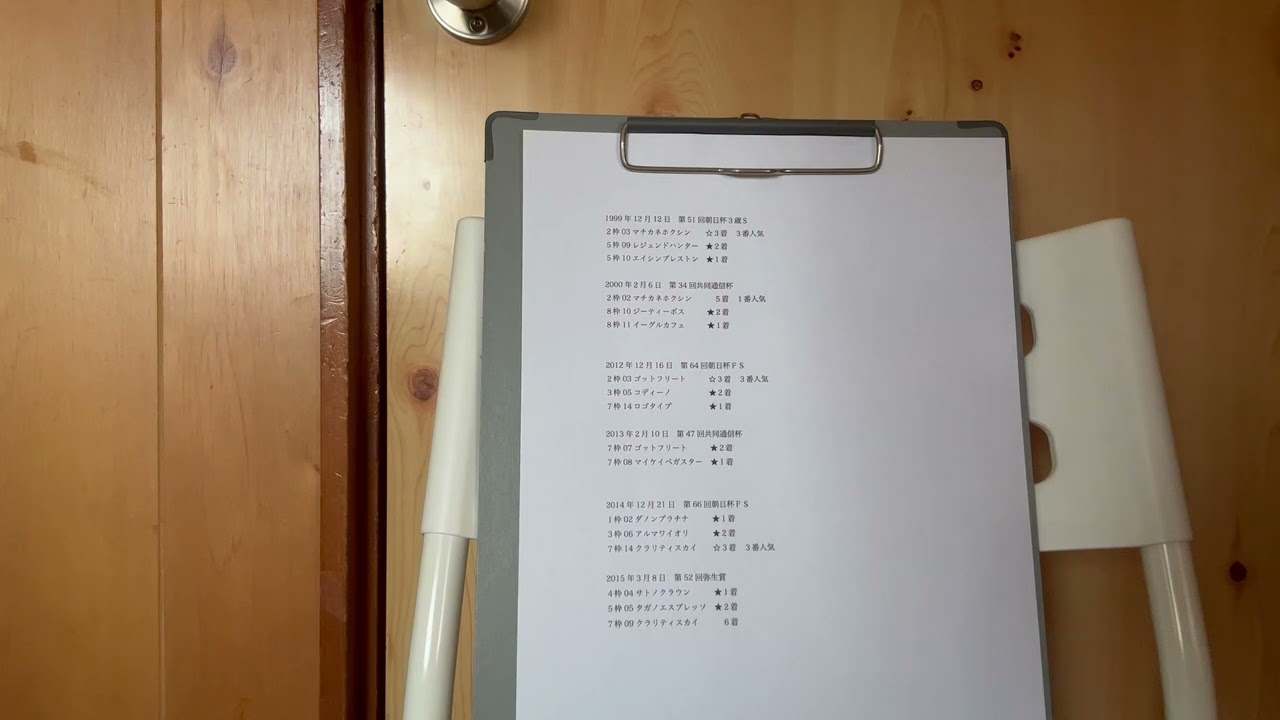 1999年12月12日　第51回朝日杯3歳S
2枠03マチカネホクシン　☆3着　3番人気
5枠09レジェンドハンター　★2着
5枠10エイシンプレストン　★1着
2000年2月6日　第34回共同通信杯
2枠02マチカネホクシン　5着　1番人気
8枠10ジーティーボス　★2着
8枠11イーグルカフェ　★1着
2012年12月16日　第64回朝日杯FS
2枠03ゴットフリート　☆3着　3番人気
3枠05コディーノ　★2着
7枠14ロゴタイプ　★1着
2013年2月10日　第47回共同通信杯
7枠07ゴットフリート　★2着
7枠08マイケイペガスター　★1着
2014年12月21日　第66回朝日杯FS
1枠02ダノンプラチナ　★1着
3枠06アルマワイオリ　★2着
7枠14クラリティスカイ　☆3着　3番人気
2015年3月8日　第52回弥生賞
4枠04サトノクラウン　★1着
5枠05タガノエスプレッソ　★2着
7枠09クラリティスカイ　6着